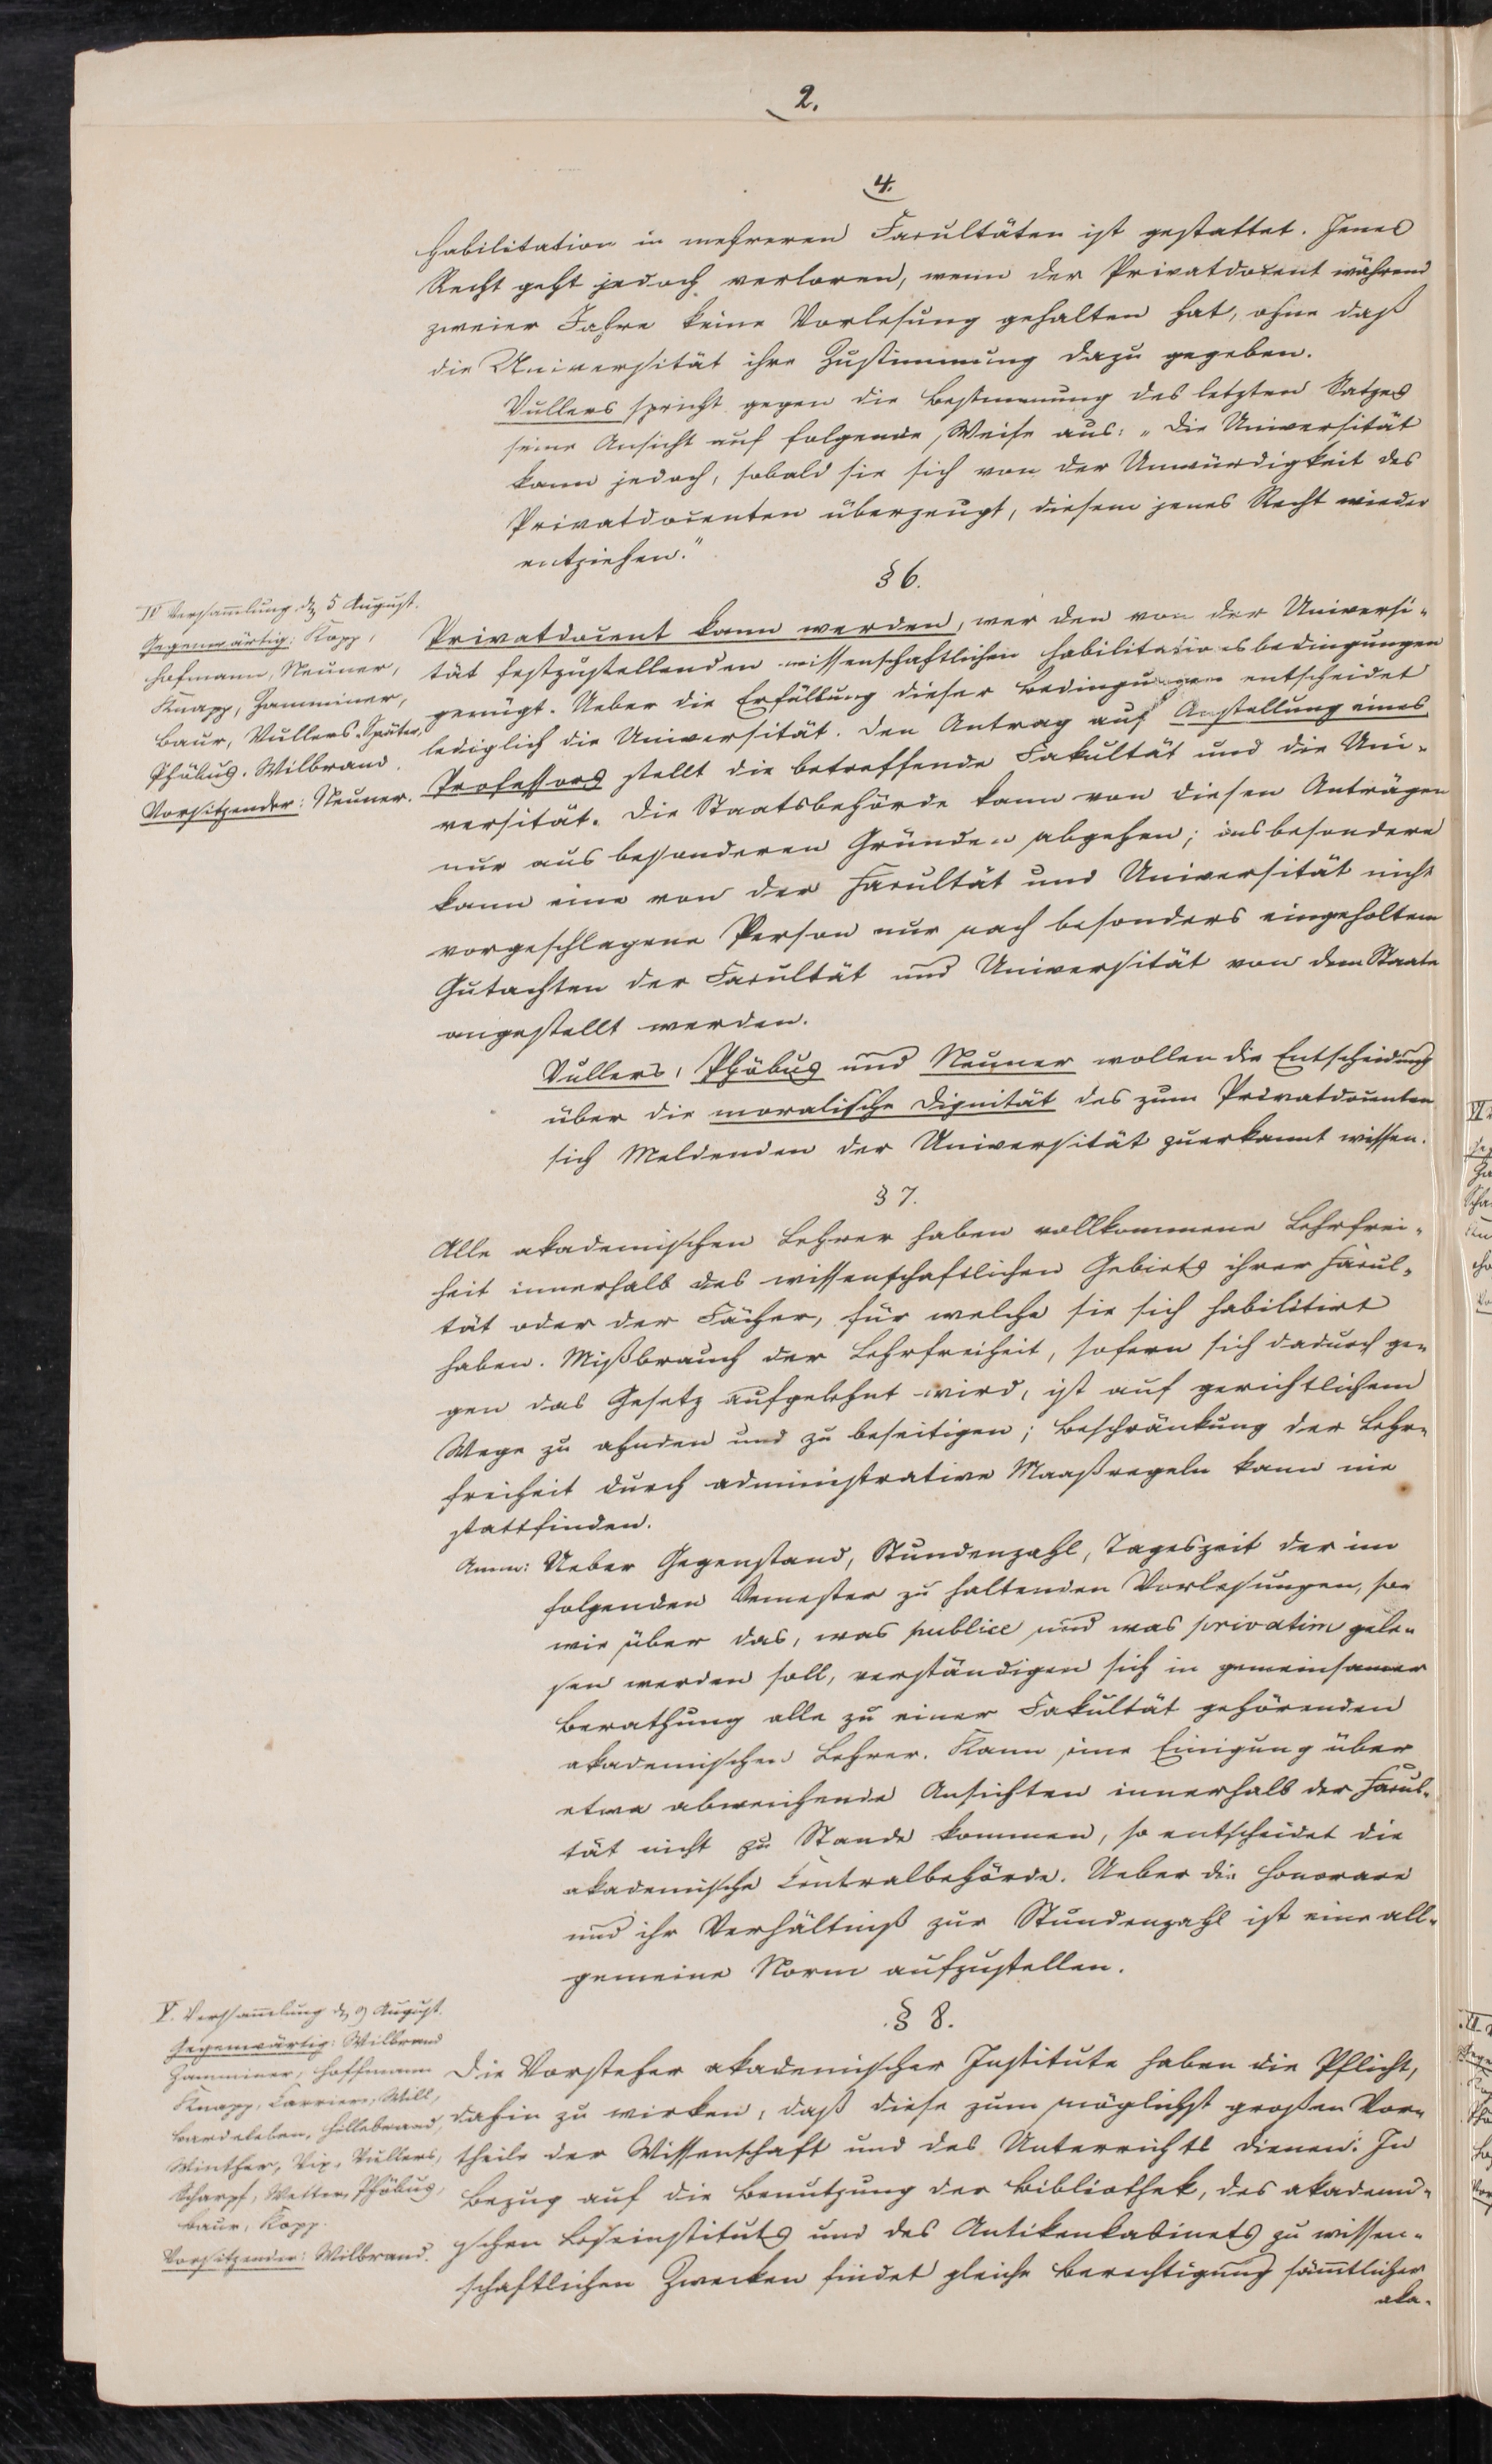 2.
4.
Habilitation in mehreren Facultäten ist gestattet. Jenes
Recht geht jedoch verloren, wenn der Privatdocent während
zweier Jahre keine Vorlesung gehalten hat, ohne daß
die Universität ihre Zustimmung dazu gegeben.
Vullers spricht gegen die Bestimmung des letzten Satzes
seine Ansicht auf folgende Weise aus: „Die Universität
kann jedoch, sobald sie sich von der Unwürdigkeit des
Privatdocenten überzeugt, diesem jenes Recht wieder
entziehen."
§ 6.
IV Versam̄lung d. 5 August.
Gegenwärtig: Kopp,
Hofmann, Neuner,
Knapp, Zamminer,
Baur, Vullers. Später,
Phöbus. Wilbrand.
Vorsitzender: Neuner.
Privatdocent kann werden, wer den von der Universi-
tät festzustellenden wissenschaftlichen Habilitationsbedingungen
genügt. Ueber die Erfüllung dieser Bedingungen entscheidet
lediglich die Universität. Den Antrag auf Anstellung eines
Professors stellt die betreffende Fakultät und die Uni-
versität. Die Staatsbehörde kann von diesen Anträgen
nur aus besonderen Gründen abgehen; insbesondere
kann eine von der Facultät und Universität nicht
vorgeschlagene Person nur nach besonders eingeholtem
Gutachten der Facultät und Universität von dem Staate
angestellt werden.
Vullers, Phöbus und Neuner wollen die Entscheidung
über die moralische Dignität des zum Privatdocenten
sich Meldenden der Universität zuerkannt wissen.
§ 7.
Alle akademischen Lehrer haben vollkommene Lehrfrei-
heit innerhalb des wissenschaftlichen Gebiets ihrer Facul-
tät oder der Fächer, für welche sie sich habilitirt
haben. Mißbrauch der Lehrfreiheit, sofern sich dadurch ge-
gen das Gesetz aufgelehnt wird, ist auf gerichtlichem
Wege zu ahnden und zu beseitigen; Beschränkung der Lehr-
freiheit durch administrative Maaßregeln kann nie
stattfinden.
Anm: Ueber Gegenstand, Stundenzahl, Tageszeit der im
folgenden Semester zu haltenden Vorlesungen, so-
wie über das, was publice und was privatim gele-
sen werden soll, verständigen sich in gemeinsamer
Berathung alle zu einer Fakultät gehörenden
akademischen Lehrer. Kann eine Einigung über
etwa abweichende Ansichten innerhalb der Facul-
tät nicht zu Stande kommen, so entscheidet die
akademische Centralbehörde. Ueber die Honorare
und ihr Verhältniß zur Stundenzahl ist eine all-
gemeine Norm aufzustellen.
§ 8.
V. Versam̄lung d. 9 August.
Gegenwärtig: Wilbrand
Zamminer, Hoffmann
Knapp, Carriere, Will,
Bardeleben, Hillebrand,
Winther, Vix, Vullers,
Scharpf, Wetter, Phöbus,
Baur, Kopp.
Vorsitzender: Wilbrand.
Die Vorsteher akademischer Institute haben die Pflicht,
dahin zu wirken, daß diese zum möglichst großen Vor-
theile der Wissenschaft und des Unterrichts dienen. In
Bezug auf die Benutzung der Bibliothek, des akademi-
schen Leseinstituts und des Antikenkabinets zu wissen-
schaftlichen Zwecken findet gleiche Berechtigung sämmtlicher
aka-